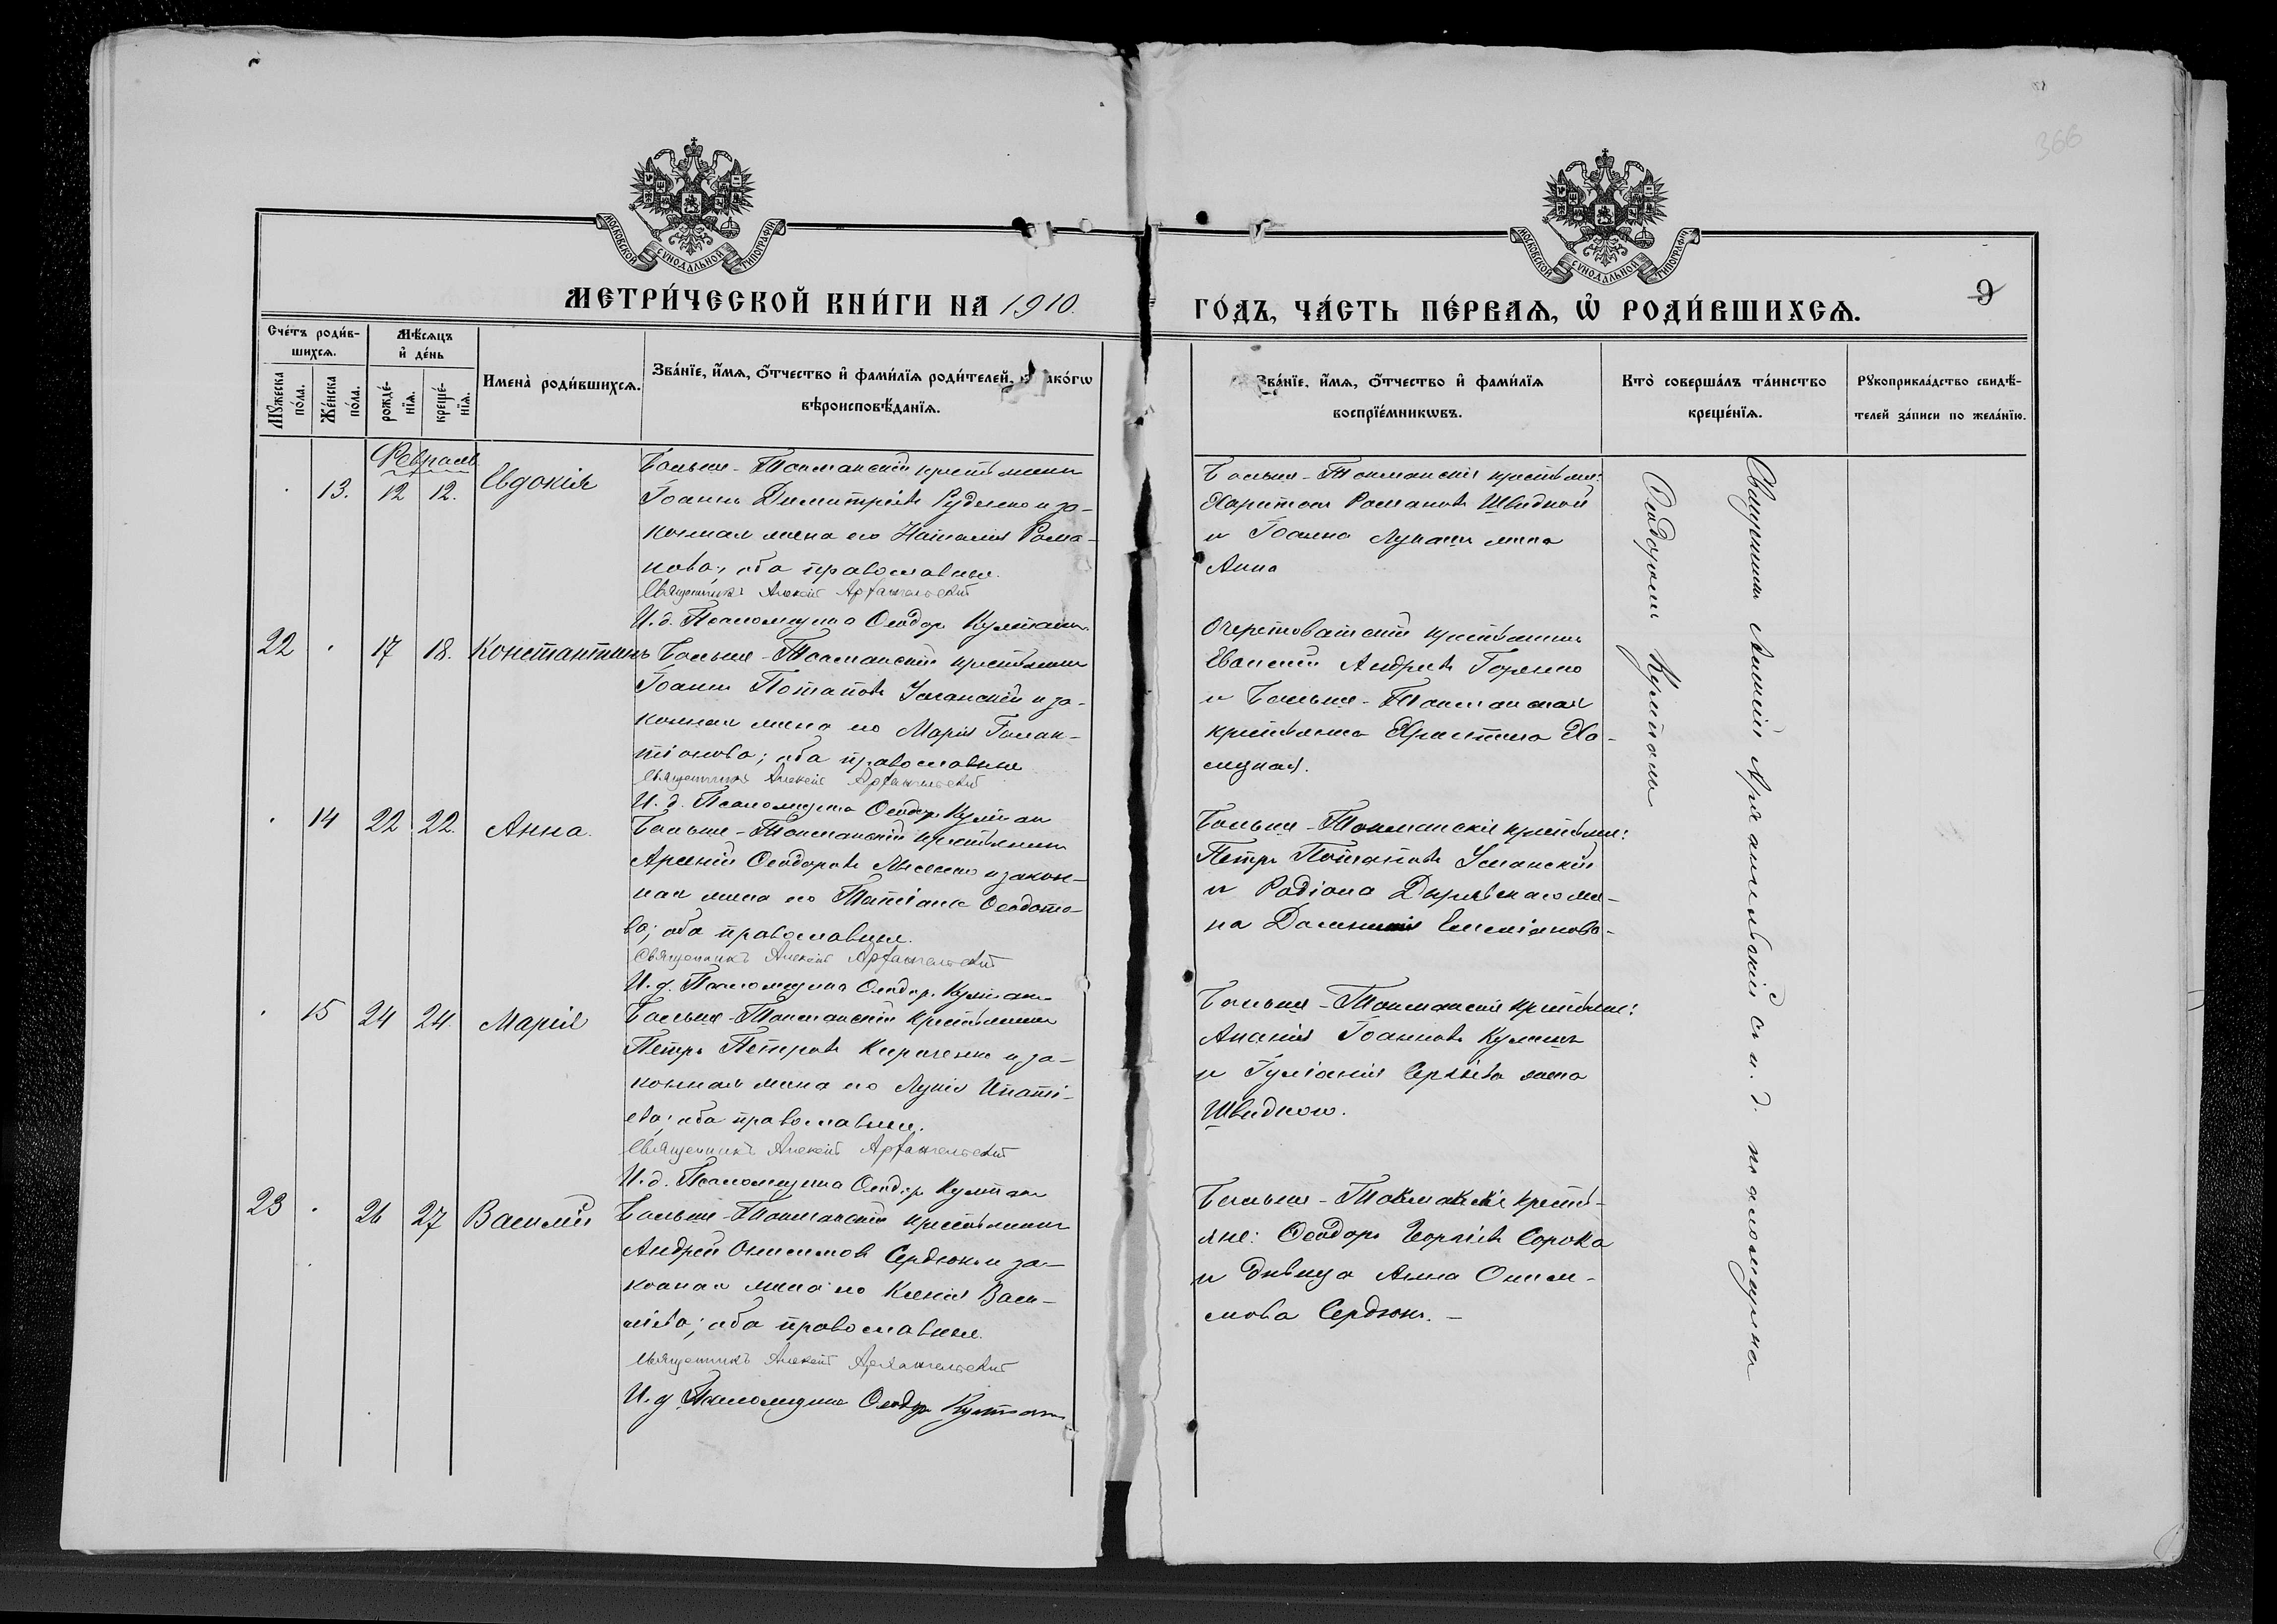 366
МОСКОВСКОЙ СѴНОДАЛЬНОЙ ТИПОГРАФІИ
МОСКОВСКОЙ СѴНОДАЛЬНОЙ ТИПОГРАФІИ
МЕТРИ́ЧЕСКОЙ КНИ́ГИ НА 1910.
ГО́ДЪ, ЧА́СТЬ ПЕ́РВАЯ, Ѿ РОДИ́ВШИХСЯ.
9
Сче́тъ роди́в-
шихся.
Мѣ́сяцъ
и҆ де́нь
Мꙋ́жеска
по́ла.
Же́нска
по́ла.
рожде́-
нїя.
креще́-
нїя.
Имена̀ роди́вшихся.
Зва́нїе, и҆́мя, ѻ҆́тчество и҆ фами́лїя роди́телей, и҆ како́гѡ
вѣроисповѣ́данїя.
Зва́нїе, и҆́мя, ѻ҆́тчество и҆ фами́лїя
воспрїе́мникѡвъ.
Кто̀ соверша́лъ та́инство
креще́нїя.
Рꙋкоприкла́дство свидѣ́-
телей за́писи по жела́нїю.
Февраль
13.
12
12.
Евдокія
Больше-Токмакскій крестьянинъ
Іоаннъ Димитріевъ Руденко и за-
конная жена его Наталія Рома-
нова; оба православные.
Священникъ Алексій Архангельскій
И. д. Псаломщика Ѳеодоръ Култанъ
Больше-Токмакскіе крестьяне:
Харитонъ Романовъ Швидкой
и Іоанна Лукаша жена
Анна
22
17
18.
Константинъ
Больше-Токмакскій крестьянинъ
Іоаннъ Потаповъ Усманскій и за-
конная жена его Марія Галак-
тіонова; оба православные
Священникъ Алексій Архангельскій
И. д. Псаломщика Ѳеодоръ Култан
Очеретоватскій крестьянинъ
Евсеній Андреевъ Горенко
и Больше-Токмакская
крестьянка Христина
14
22
22.
Анна.
Больше-Токмакскій крестьянинъ
Арсеній Ѳеодоровъ Лысенко и закон-
ная жена его Татіана Ѳеодото-
ва; оба православные.
Священникъ Алексій Архангельскій
И. д. Псаломщика Ѳеодоръ Култанъ
Больше-Токмакскіе крестьяне:
Петръ Потаповъ Усманскій
и Родіона Дырявскаго же-
на Домникія Емеліанова.
15
24
24.
Марія
Больше-Токмакскій крестьянинъ
Петръ Петровъ Кириченко и за-
конная жена его Лукія Ипаті-
ева; оба православные.
Священникъ Алексій Архангельскій
И. д. Псаломщика Ѳеодоръ Култанъ
Больше-Токмакскіе крестьяне:
Ананія Іоанновъ Кулешъ
и Іуліанія Сергіева жена
Швидкого.
23
26
27
Василій
Больше-Токмакскій крестьянинъ
Андрей Онисимовъ Сердюкъ и за-
конная жена его Ксенія Васи-
ліева; оба православные.
Священникъ Алексій Архангельскій
И. д. Псаломщика Ѳеодоръ Култанъ
Больше-Токмакскіе кресть-
яне: Ѳеодоръ Георгіевъ Сорока
и дѣвица Анна Ониси-
мова Сердюкъ. –
Священникъ Алексій Архангельскій съ и. д. псаломщика
Ѳеодоромъ Култаномъ